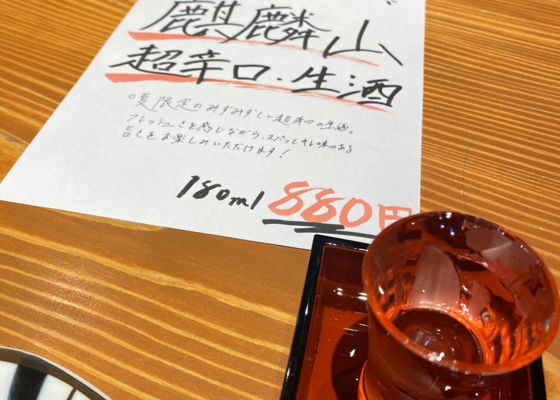 麒麟山
超辛口・生酒
夏限定のみずみずしい超辛口の生酒。
フレッシュさを感じながら、スパッとキレ味のある
旨さをお楽しみいただけます！
180ml 880円